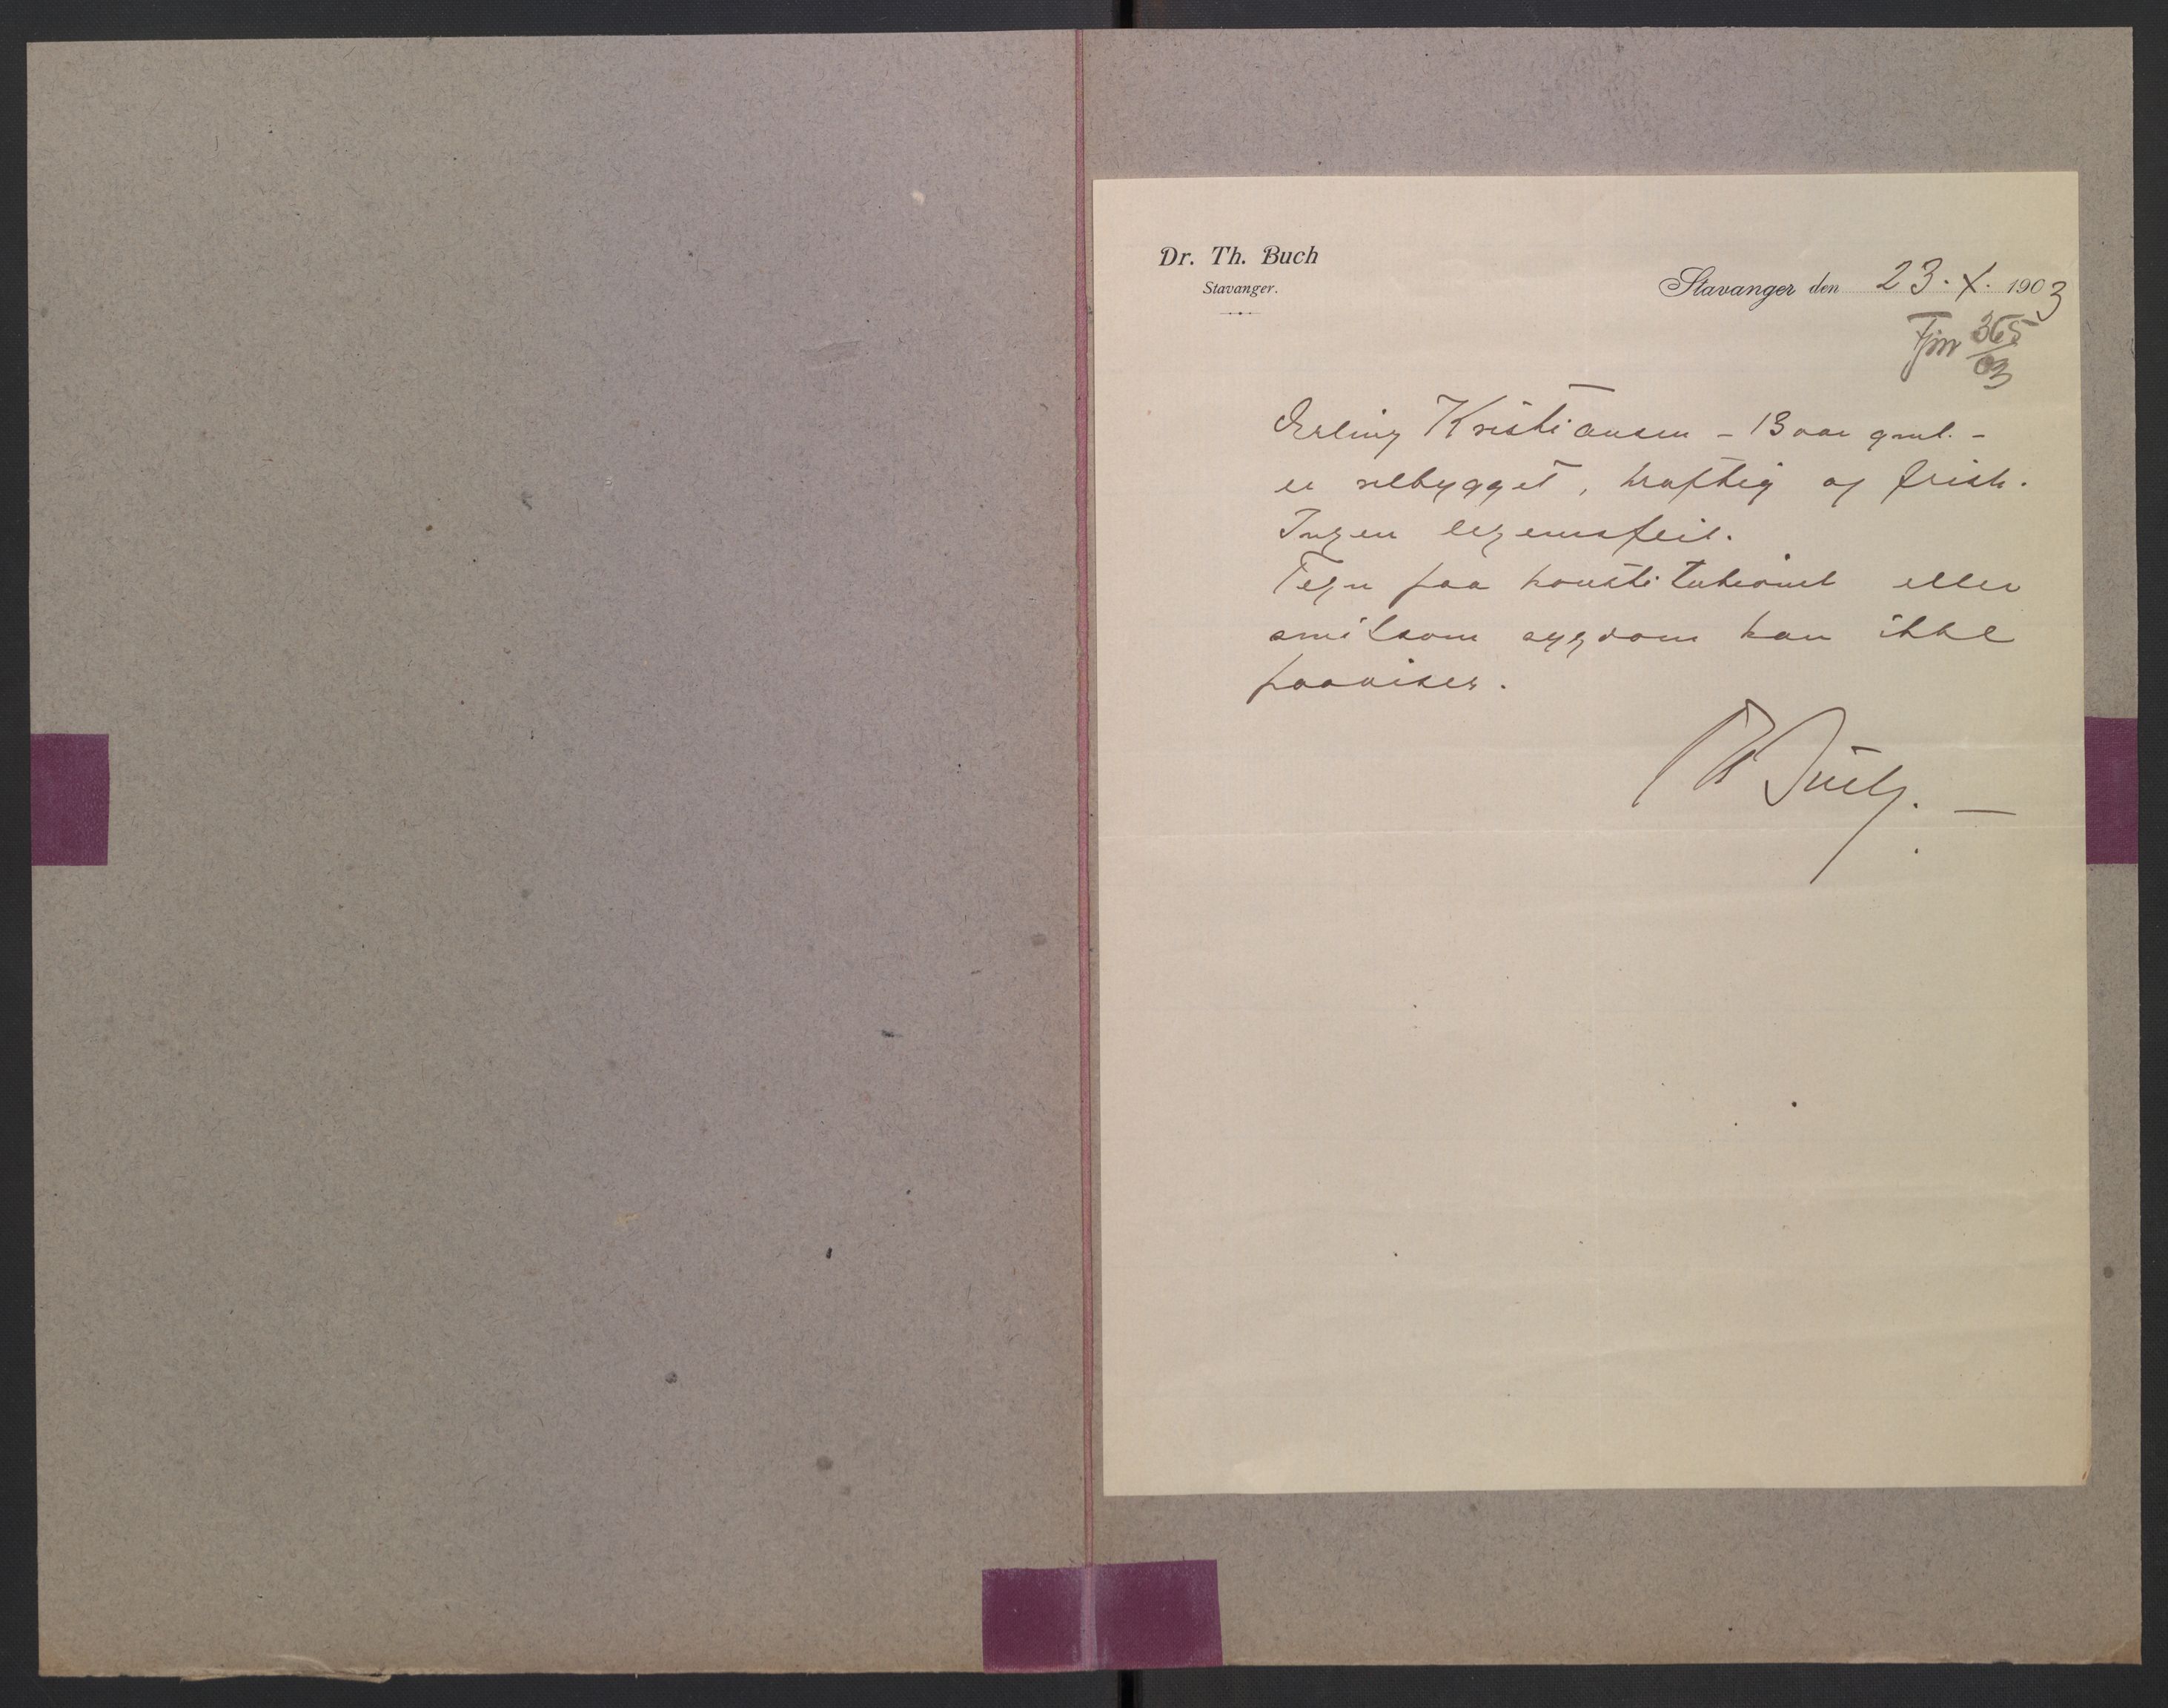 Dr. Th. Buch
Stavanger.
Stavanger den 23. X. 1903
365
03
Erling Kristiansen – 13 aar gml. –
er velbygget, kraftig og frisk.
Ingen legemsfeil.
Tegn paa konstitutionel eller
smitsom sygdom kan ikke
paavises.
Th Buch. –